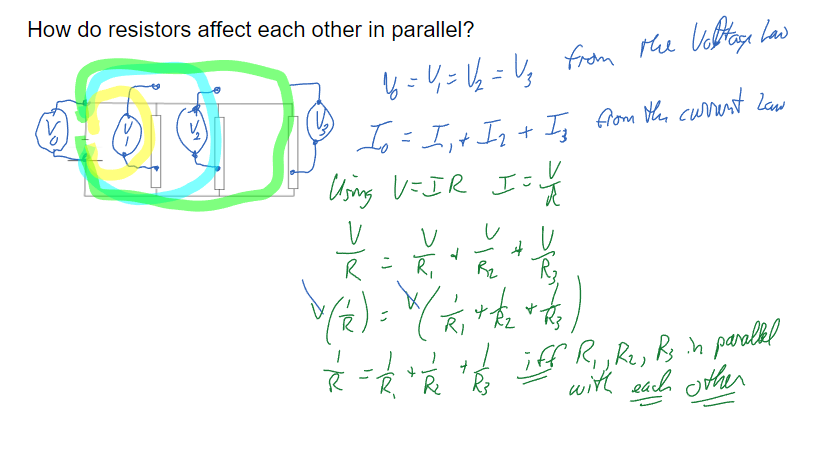 How do resistors affect each other in parallel?
V₀ = V₁ = V₂ = V₃ from the Voltage Law
I₀ = I₁ + I₂ + I₃ from the current Law
V₀ V₁ V₂ V₃
Using V=IR I = V/R
V/R = V/R₁ + V/R₂ + V/R₃
V(1/R) = V(1/R₁ + 1/R₂ + 1/R₃)
1/R = 1/R₁ + 1/R₂ + 1/R₃ iff R₁, R₂, R₃ in parallel
with each other